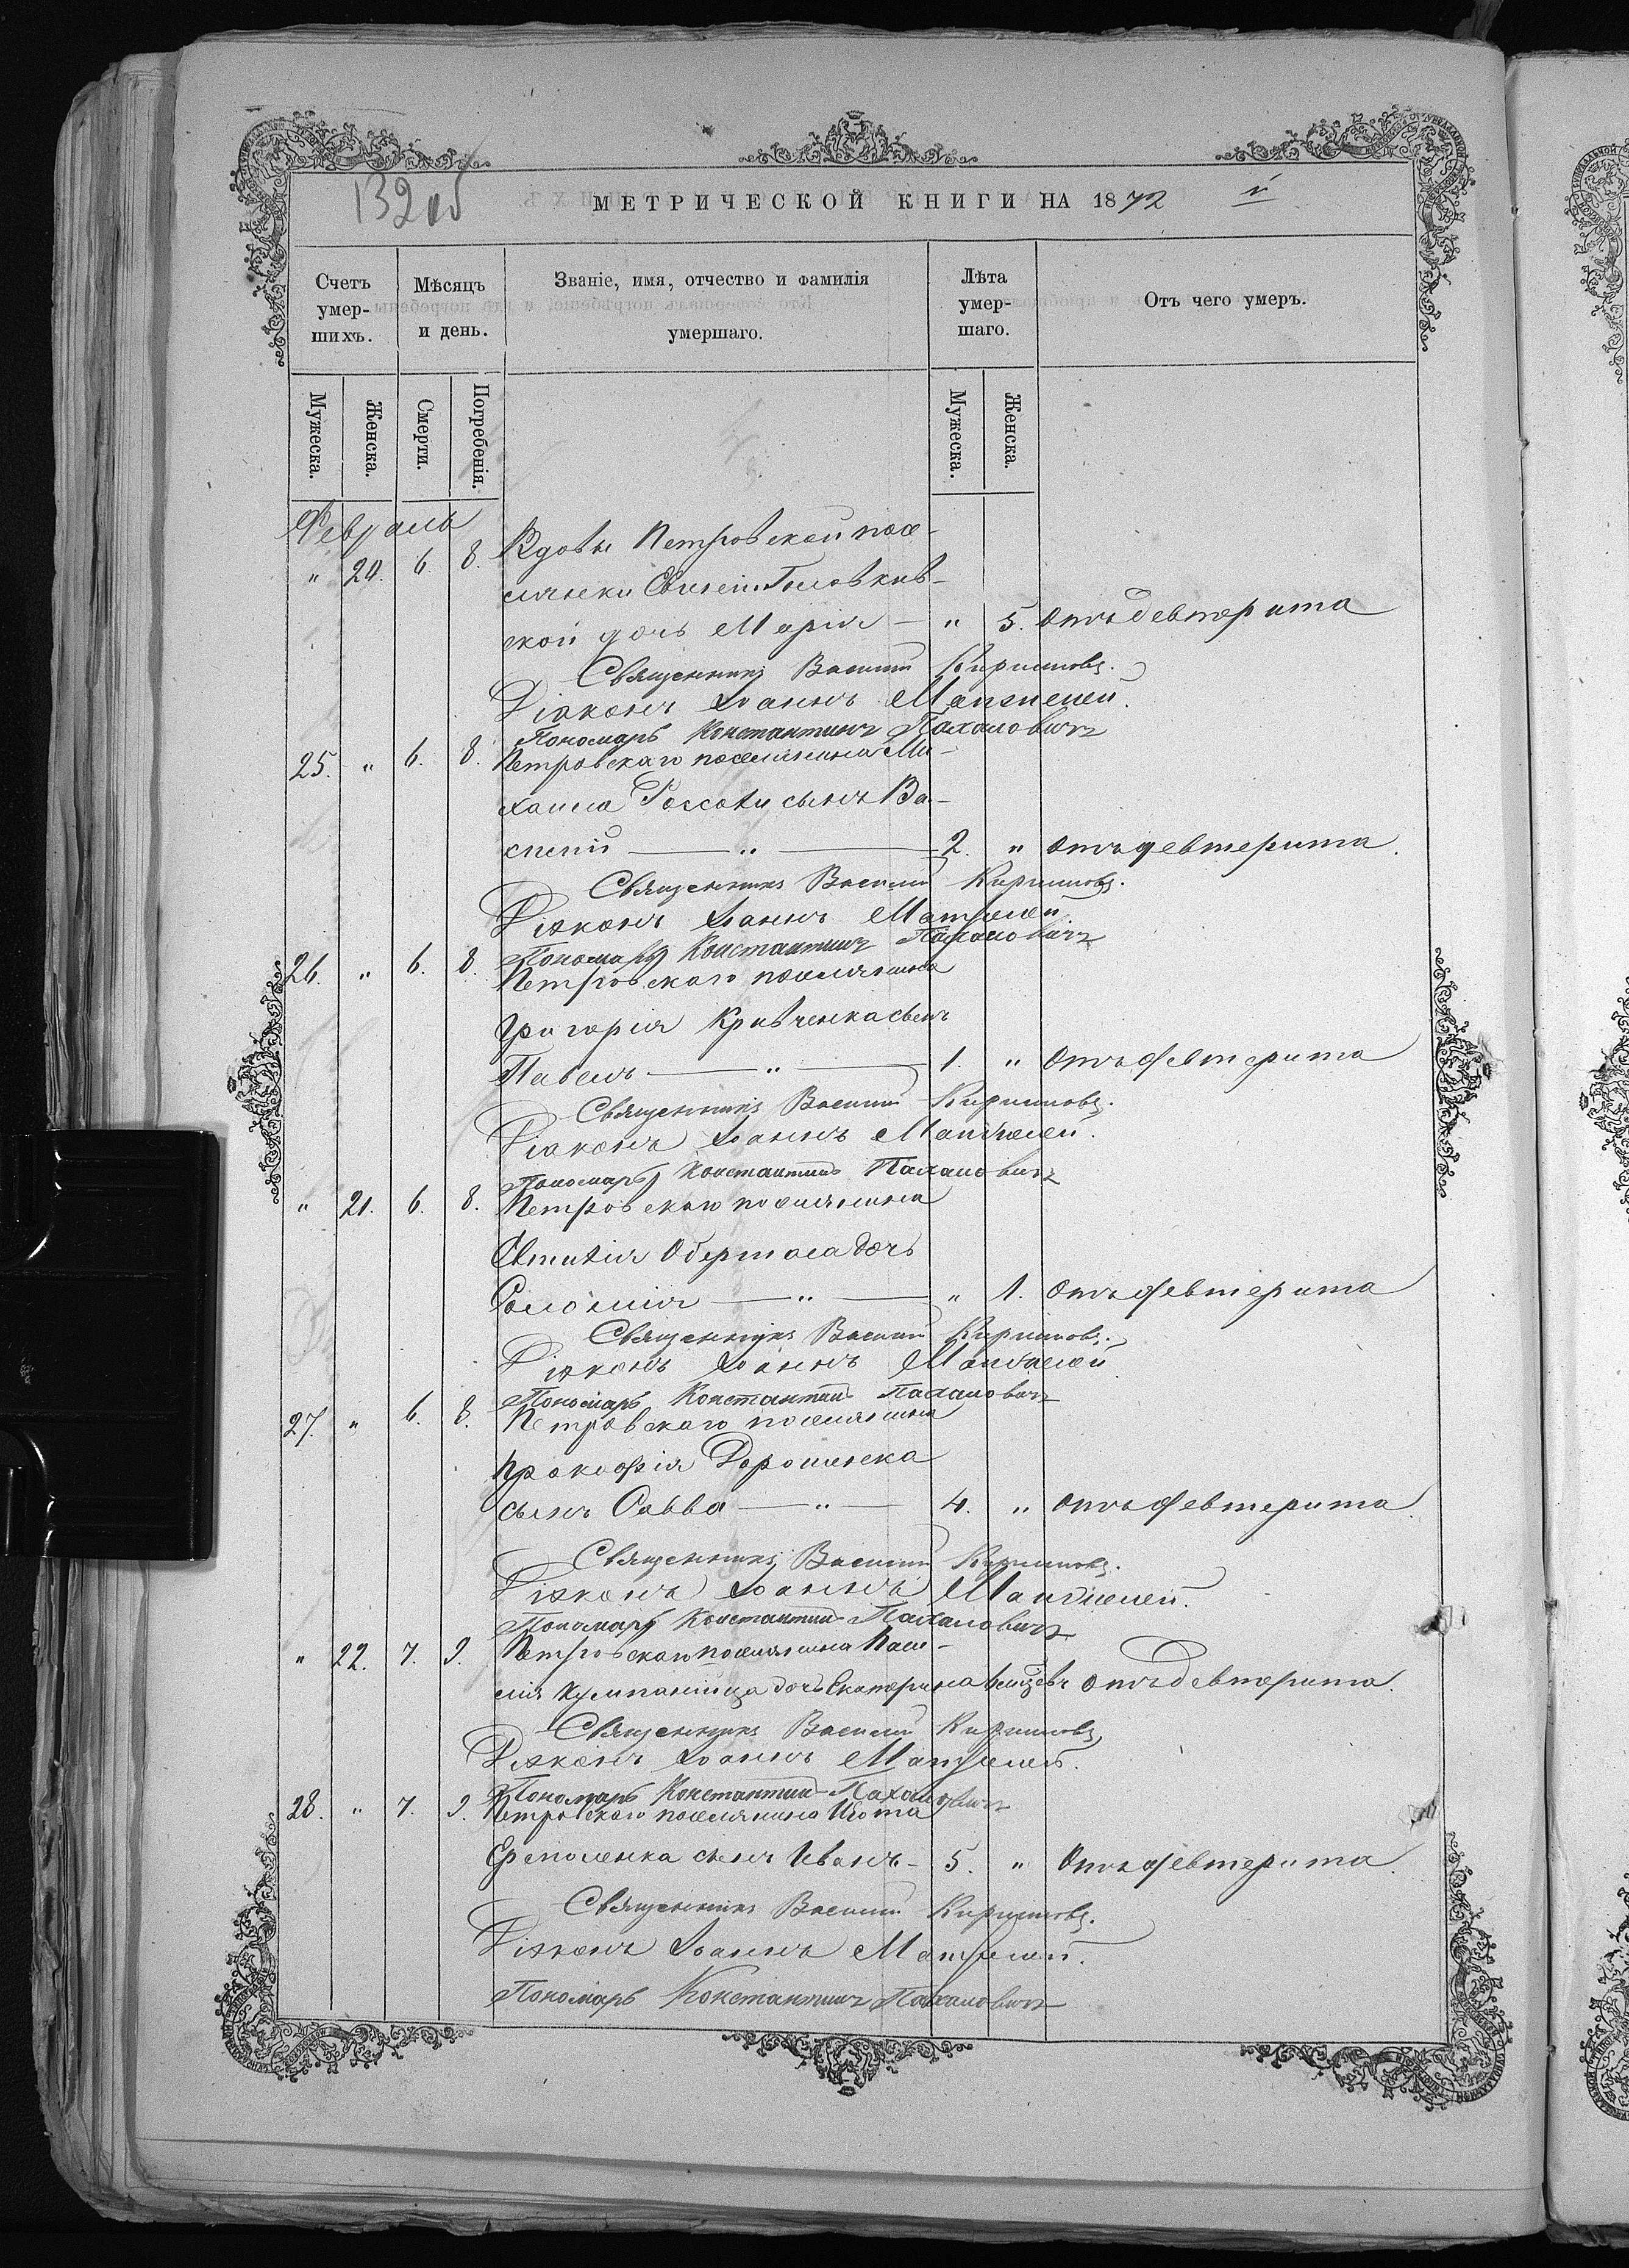 132 об
МЕТРИЧЕСКОЙ КНИГИ НА 1872 й
Счетъ умершихъ.
Мѣсяцъ и день.
Званіе, имя, отчество и фамилія умершаго.
Лѣта умершаго.
Отъ чего умеръ.
Мужеска. Женска. Смерти. Погребенія. Мужеска. Женска.
Февраль
" 20. 6. 8. Вдовы Петровской посе-
лянки Головкив-
ской дочь Марія — " 5. отъ девтерита
Священникъ Василій Кириловъ.
Діаконъ Іоаннъ
Пономарь Константинъ Пахаловичъ
25. " 6. 8. Петровскаго поселянина Ми-
хаила сынъ Ва-
силій — " — 2. " отъ девтерита.
Священникъ Василій Кириловъ.
Діаконъ Іоаннъ
Пономарь Константинъ Пахаловичъ
26. " 6. 8. Петровскаго поселянина
Григорія Кривченка сынъ
Павелъ — " — 1. " отъ девтерита
Священникъ Василій Кириловъ.
Діаконъ Іоаннъ
Пономарь Константинъ Пахаловичъ
" 21. 6. 8. Петровскаго поселянина
Евтихія дочь
Соломія — " — " 1. отъ девтерита
Священникъ Василій Кириловъ.
Діаконъ Іоаннъ
Пономарь Константинъ Пахаловичъ
27. " 6. 8. Петровскаго поселянина
Прокофія Дорошенка
сынъ Савва — " — 4. " отъ девтерита.
Священникъ Василій Кириловъ.
Діаконъ Іоаннъ
Пономарь Константинъ Пахаловичъ
" 22. 7. 9. Петровскаго поселянина Васи-
лія дочь Екатерина отъ девтерита.
Священникъ Василій Кириловъ,
Діаконъ Іоаннъ
Пономарь Константинъ Пахаловичъ
28. " 7. 9. Петровскаго поселянина
Ермоленка сынъ Иванъ - 5. " отъ девтерита.
Священникъ Василій Кириловъ.
Діаконъ Іоаннъ
Пономарь Константинъ Пахаловичъ